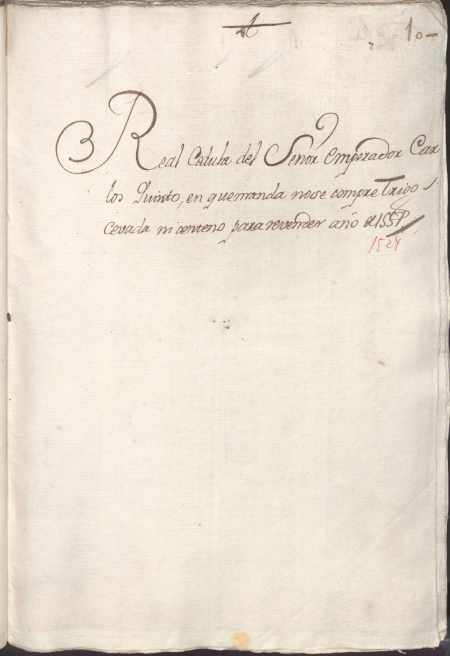 10-
Real Cedula del Señor Emperador Car
los Quinto, en que manda nose compre Trigo
Cevada ni centeno para revender año
1528